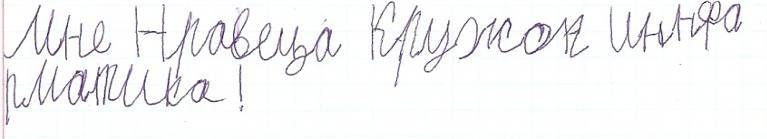 Мне Нравеца Кружок иннфа
рматика!